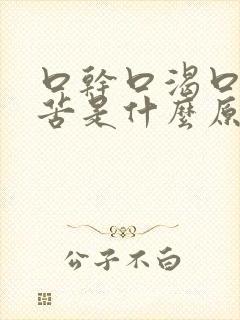 口幹口渴口
苦是什麼原
公子不白